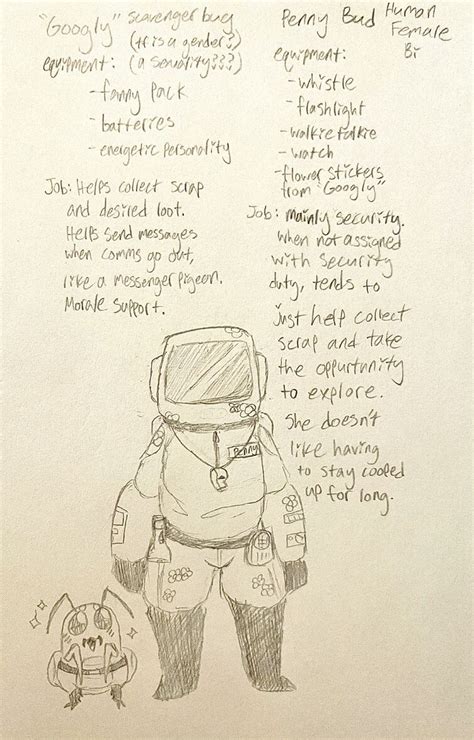 "Googly" scavenger bug
(tf is a gender?)
(a sexuality???)
equipment:
- fanny pack
- batteries
- energetic personality
Job: Helps collect scrap
and desired loot.
Helps send messages
when comms go out,
like a messenger pigeon.
Morale support.
Penny Bud Human
Female
Bi
equipment:
- whistle
- flashlight
- walkie talkie
- watch
- flower stickers
from "Googly"
Job: mainly security.
when not assigned
with security
duty, tends to
just help collect
scrap and take
the oppurtunity
to explore.
She doesn't
like having
to stay cooped
up for long.
Penny